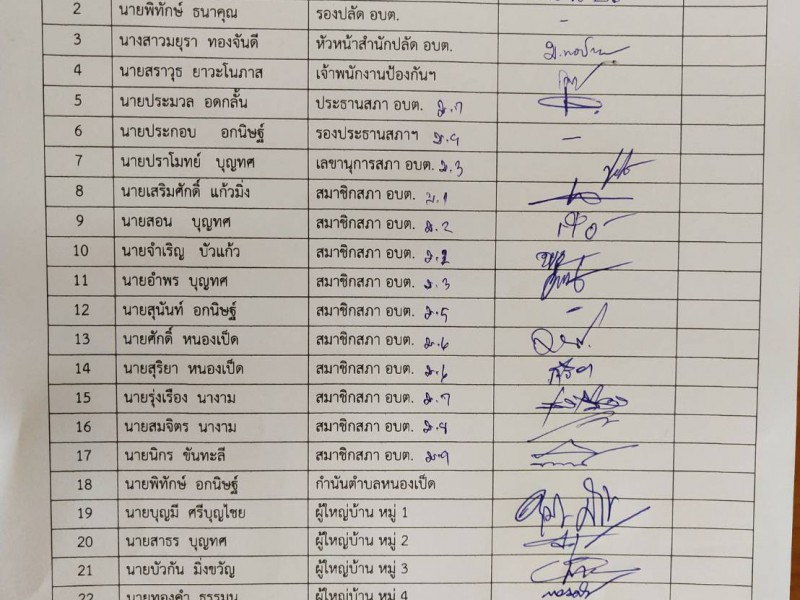 2 นายพิทักษ์ ธนาคุณ รองปลัด อบต. -
3 นางสาวมยุรา ทองจันดี หัวหน้าสำนักปลัด อบต.
4 นายสราวุธ ยาวะโนภาส เจ้าพนักงานป้องกันฯ
5 นายประมวล อตกลั้น ประธานสภา อบต. ม.7
6 นายประกอบ อกนิษฐ์ รองประธานสภาฯ ม.9 -
7 นายปราโมทย์ บุญทศ เลขานุการสภา อบต. ม.3
8 นายเสริมศักดิ์ แก้วมิ่ง สมาชิกสภา อบต. ม.1
9 นายสอน บุญทศ สมาชิกสภา อบต. ม.2
10 นายจำเริญ บัวแก้ว สมาชิกสภา อบต. ม.2
11 นายอำพร บุญทศ สมาชิกสภา อบต. ม.3
12 นายสุนันท์ อกนิษฐ์ สมาชิกสภา อบต. ม.5 -
13 นายศักดิ์ หนองเป็ด สมาชิกสภา อบต. ม.6
14 นายสุริยา หนองเป็ด สมาชิกสภา อบต. ม.6
15 นายรุ่งเรือง นางาม สมาชิกสภา อบต. ม.7
16 นายสมจิตร นางาม สมาชิกสภา อบต. ม.8
17 นายนิกร ขันทะลี สมาชิกสภา อบต. ม.9
18 นายพิทักษ์ อกนิษฐ์ กำนันตำบลหนองเป็ด
19 นายบุญมี ศรีบุญไชย ผู้ใหญ่บ้าน หมู่ 1
20 นายสาธร บุญทศ ผู้ใหญ่บ้าน หมู่ 2
21 นายบัวกัน มิ่งขวัญ ผู้ใหญ่บ้าน หมู่ 3
22 นายทองคำ ธรรมบุน ผู้ใหญ่บ้าน หมู่ 4